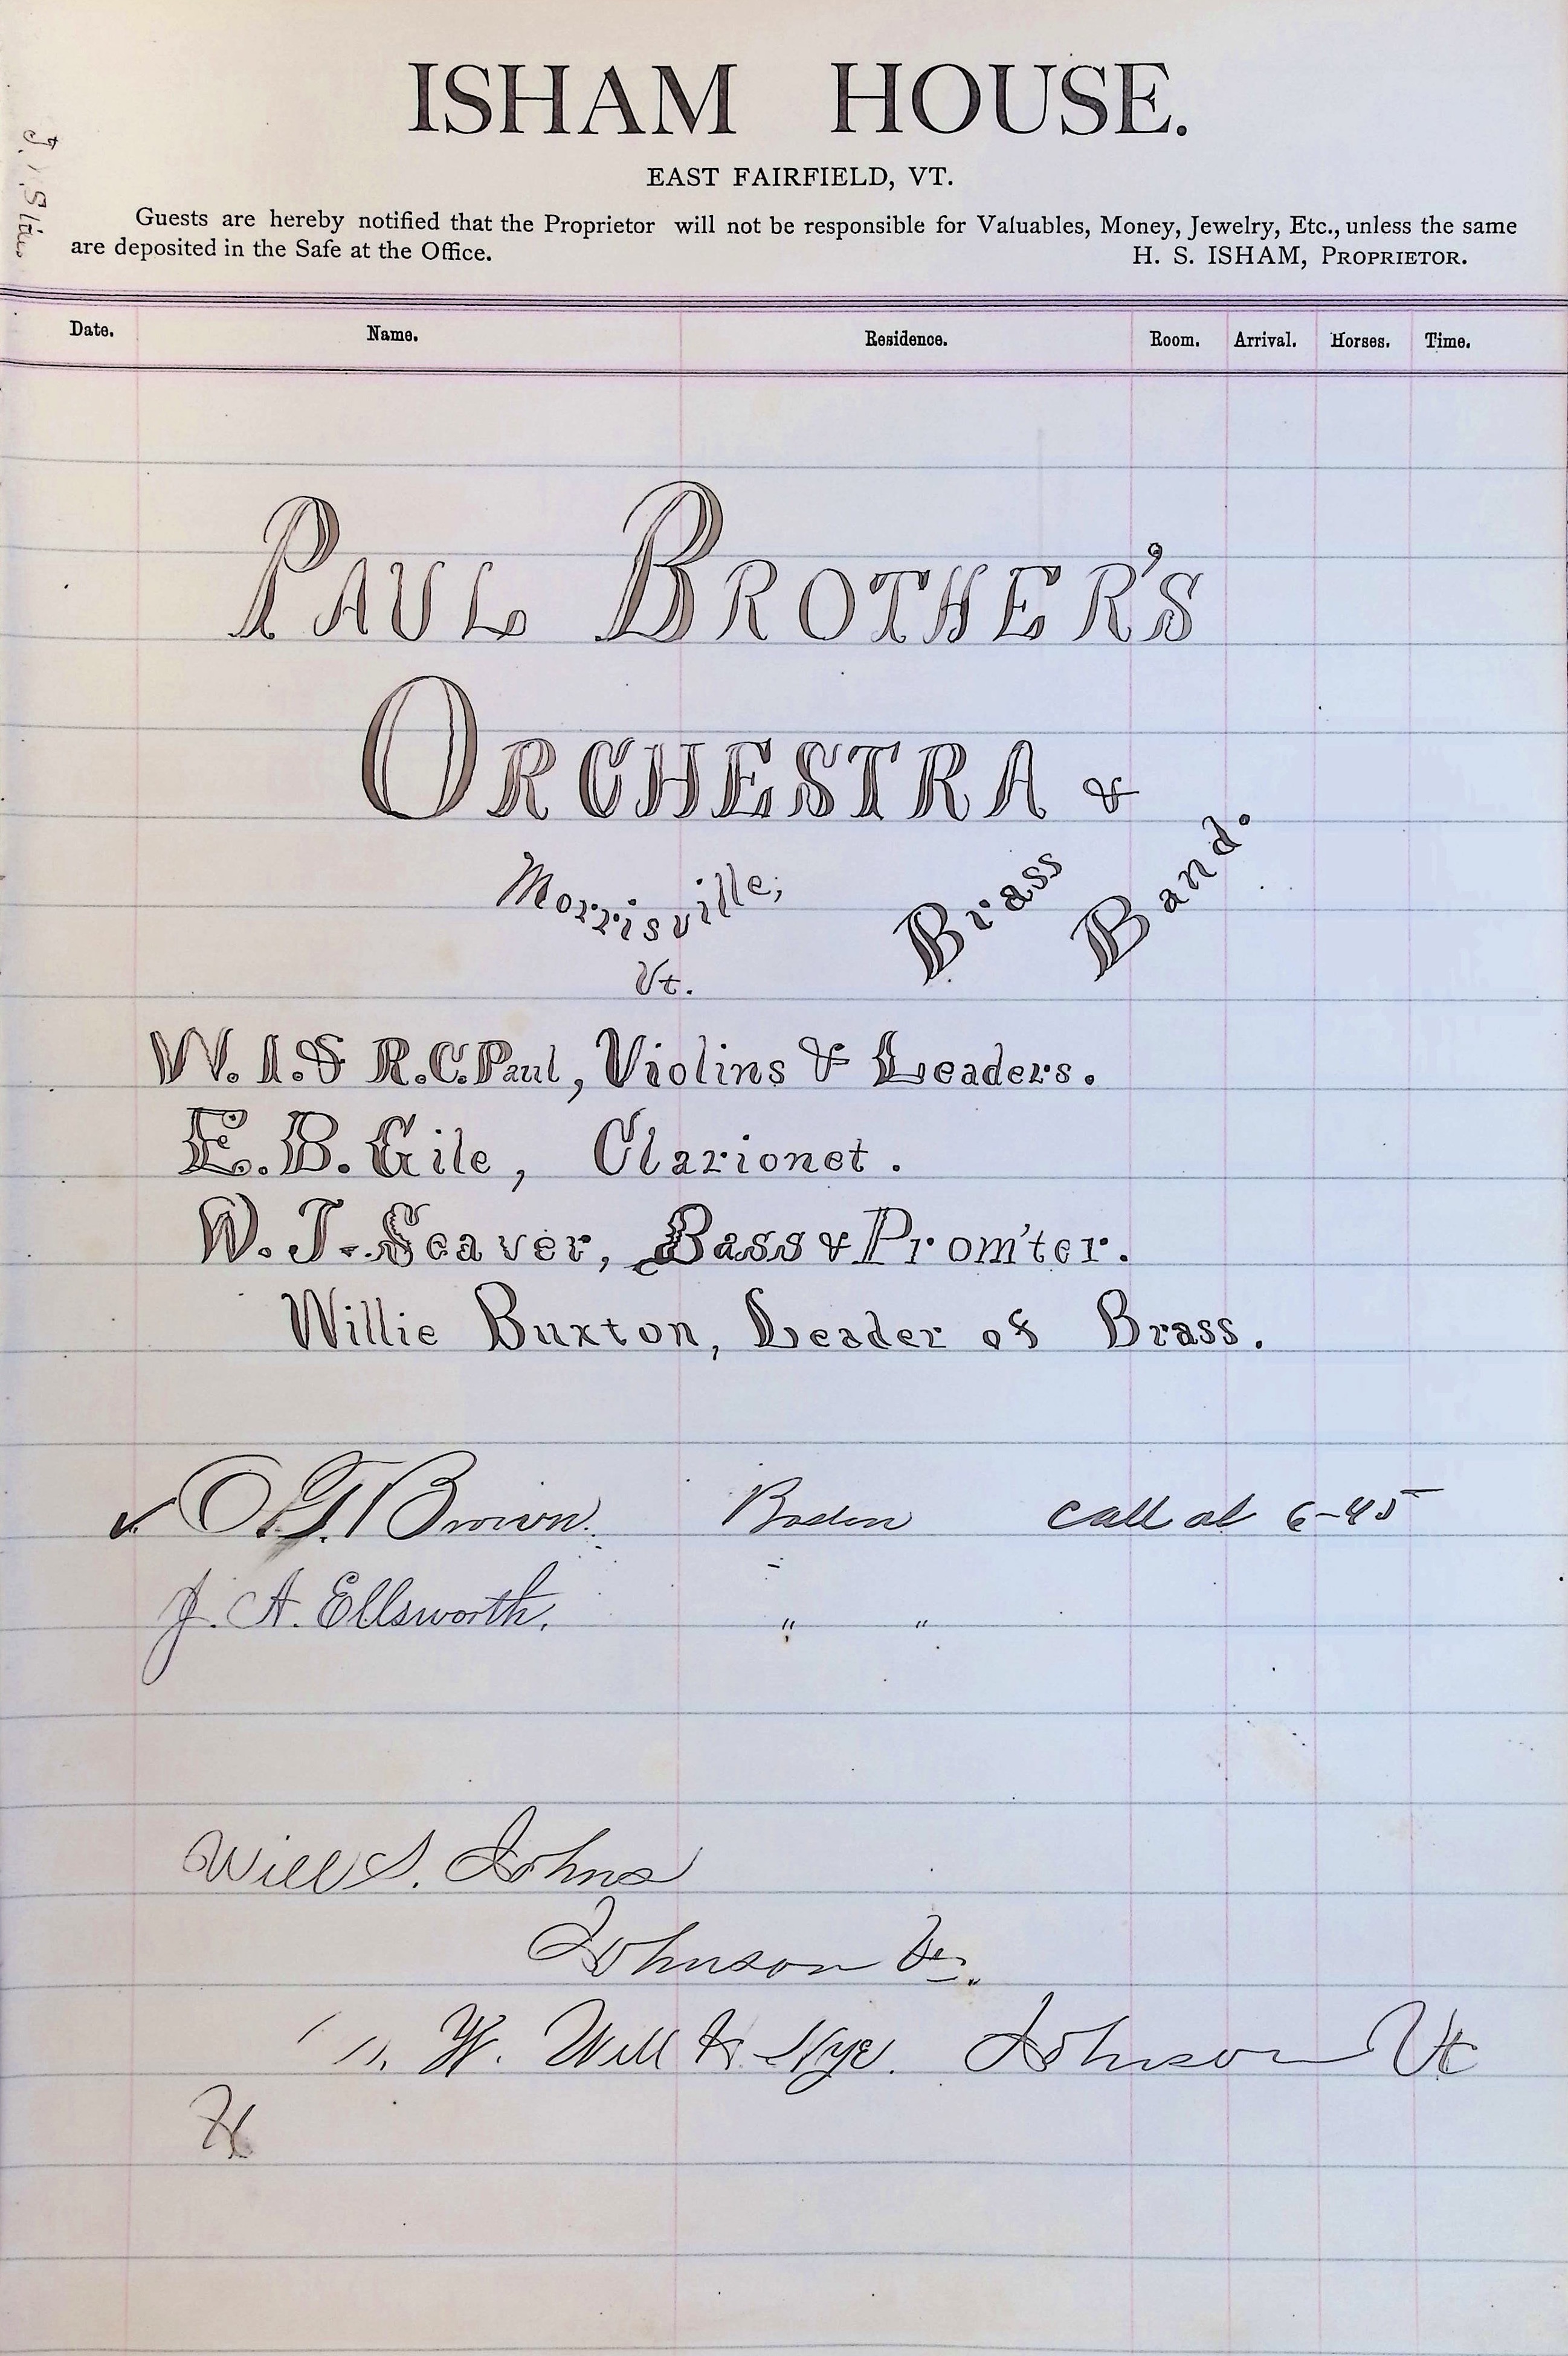 ISHAM HOUSE.
EAST FAIRFIELD, VT.
Guests are hereby notified that the Proprietor will not be responsible for Valuables, Money, Jewelry, Etc., unless the same
are deposited in the Safe at the Office.
H. S. ISHAM, PROPRIETOR.
Date. Name. Residence. Room. Arrival. Horses. Time.
PAUL BROTHER'S
ORCHESTRA &
Morrisville,
Vt.
Brass Band.
W. I. & R.C. Paul, Violins & Leaders.
E. B. Gile, Clarionet.
W. J. Seaver, Bass & Prom'ter.
Willie Buxton, Leader of Brass.
Brown. Boston call at 6-45
J. A. Ellsworth, " "
Will S. Johns
Johnson
W. Will Nye. Johnson Vt
H